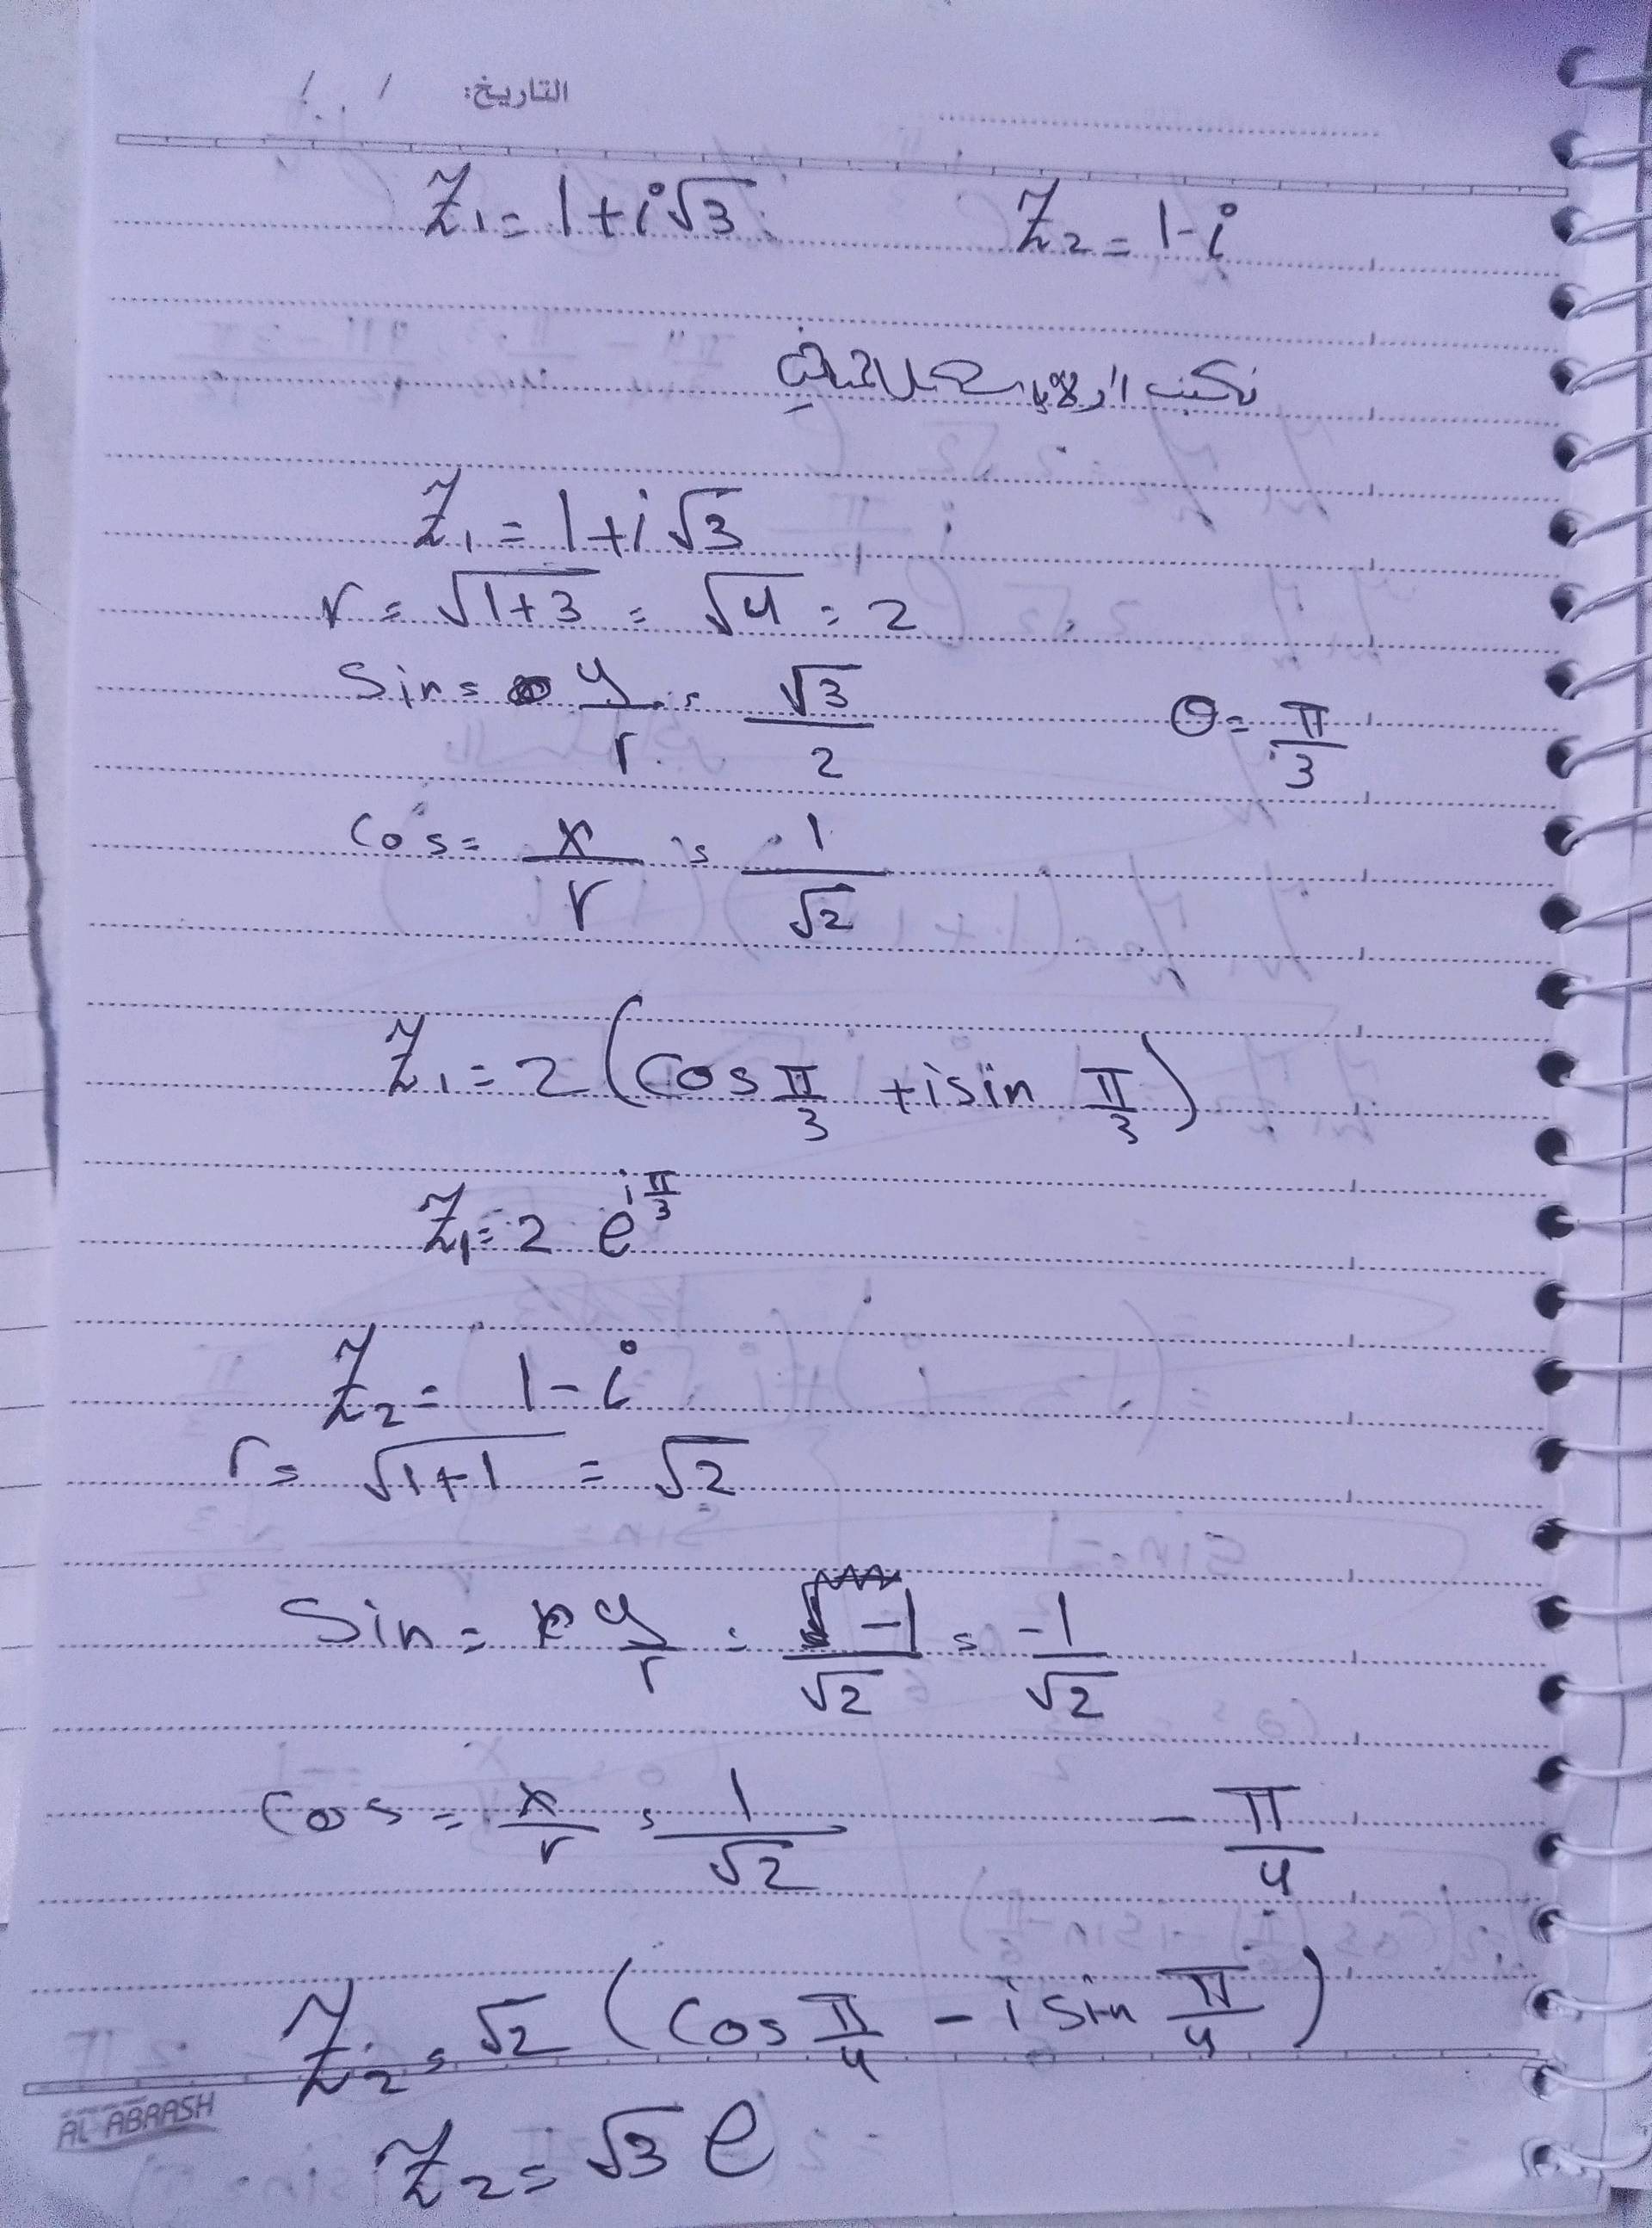 التاريخ: / /
Z₁ = 1+i√3 Z₂ = 1-i
نكتب أولاً بالشكل المثلثي
Z₁ = 1+i√3
r = √1+3 = √4 = 2
Sin = y/r = √3/2 θ = π/3
Cos = x/r = 1/√2
Z₁ = 2 (Cos π/3 + i sin π/3)
Z₁ = 2 e^(i π/3)
Z₂ = 1-i
r = √1+1 = √2
Sin = y/r = -1/√2 = -1/√2
Cos = x/r = 1/√2 -π/4
Z₂ = √2 (Cos π/4 - i Sin π/4)
AL ABRASH
Z₂ = √3 e